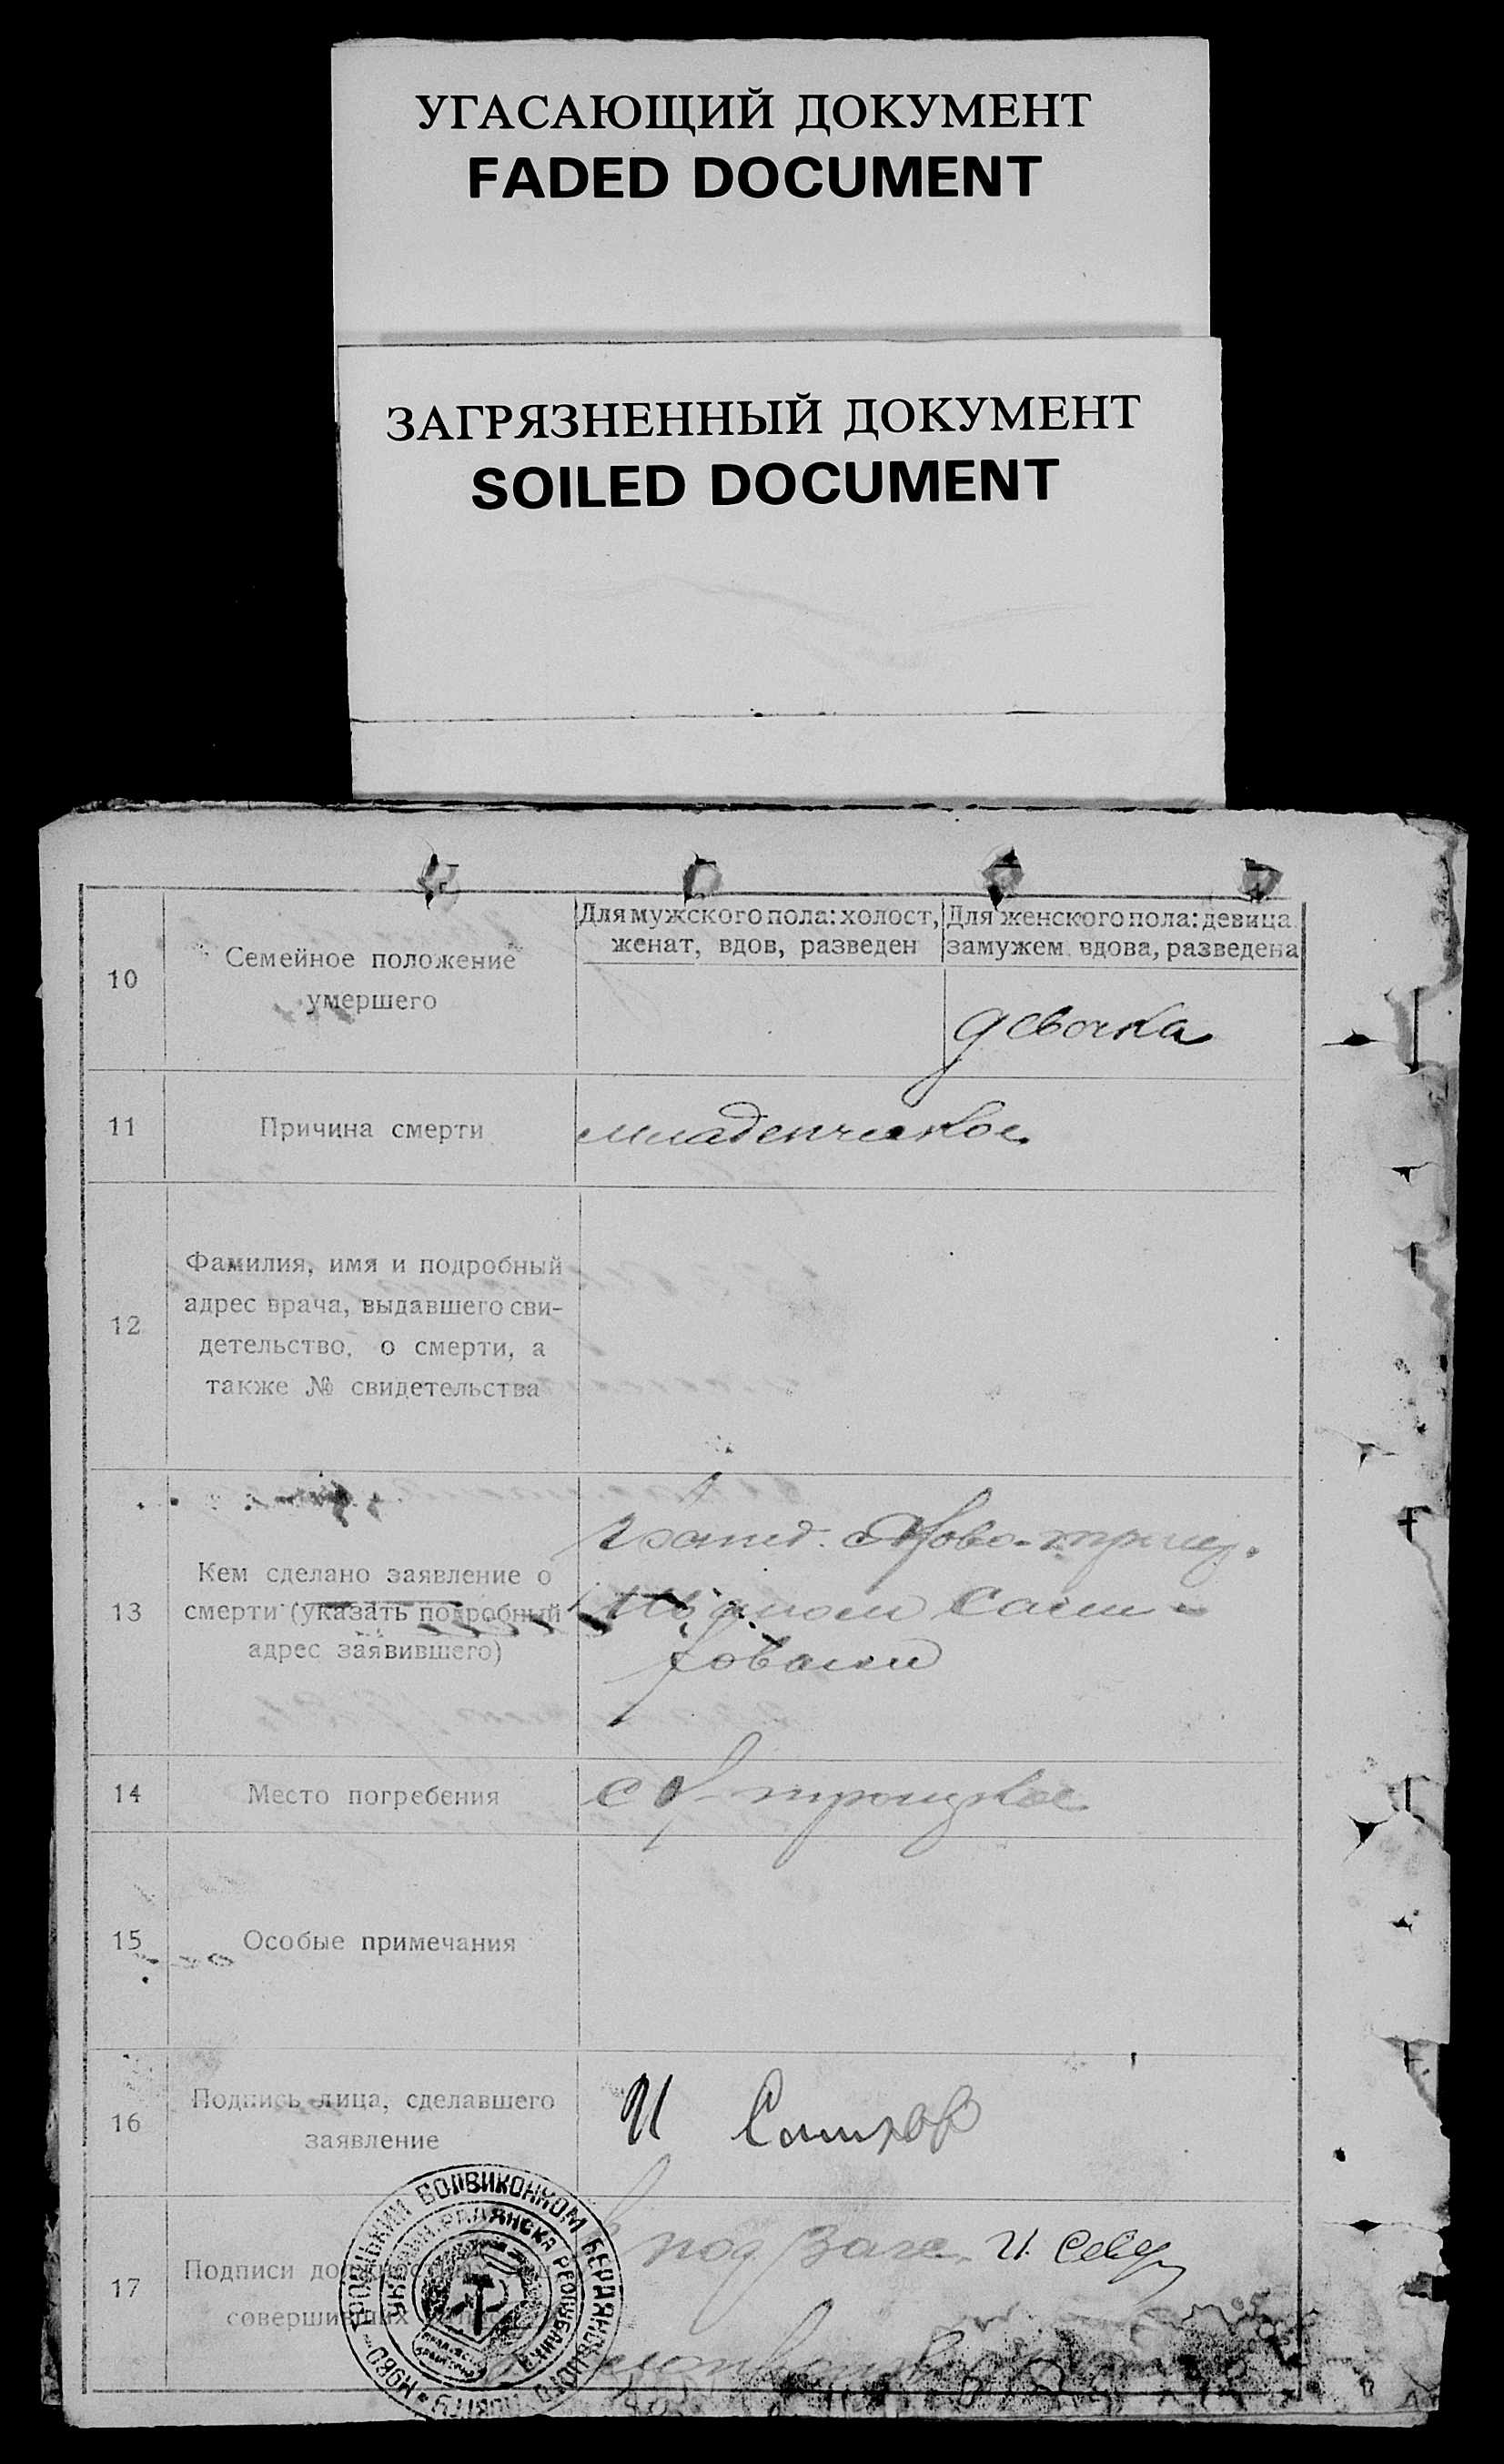 УГАСАЮЩИЙ ДОКУМЕНТ
FADED DOCUMENT
ЗАГРЯЗНЕННЫЙ ДОКУМЕНТ
SOILED DOCUMENT
10
Семейное положение
умершего
Для мужского пола: холост,
женат, вдов, разведен
Для женского пола: девица
замужем, вдова, разведена
девочка
11
Причина смерти
младенческое
12
Фамилия, имя и подробный
адрес врача, выдавшего сви-
детельство, о смерти, а
также № свидетельства
13
Кем сделано заявление о
смерти (указать подробный
адрес заявившего)
Ново-троиц.
14
Место погребения
с Н-троицкое
15
Особые примечания
16
Подпись лица, сделавшего
заявление
И
17
Подписи
совершивших
под Загс.
ВОЛВИКОНКОМ БЕРДЯНСЬКОГО